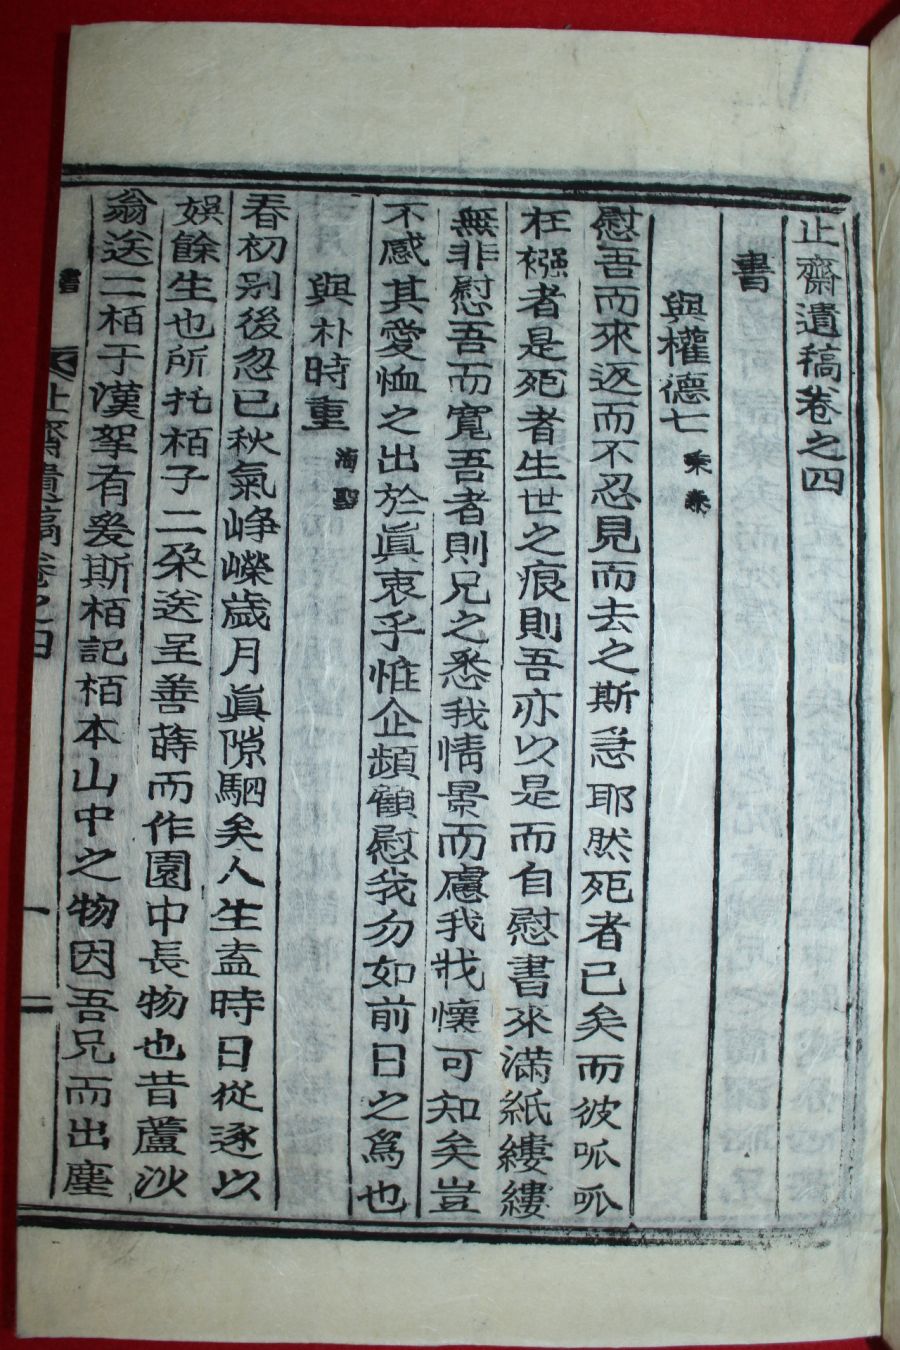 止齋遺稿卷之四
書
與權德七 秉泰
慰吾而來返而不忍見而去之斯急耶然死者已矣而彼呱呱
在襁者是死者生世之痕則吾亦以是而自慰書來滿紙縷縷
無非慰吾而寬吾者則兄之悉我情景而慮我戕懷可知矣豈
不感其愛恤之出於眞衷乎惟企頻顧慰我勿如前日之爲也
與朴時重 海聖
春初別後忽已秋氣崢嶸歲月眞隙駟矣人生盍時日從逐以
娛餘生也所托栢子二朶送呈善蒔而作園中長物也昔蘆沙
翁送二栢于漢挐有爰斯栢記栢本山中之物因吾兄而出塵
書 止齋遺稿卷之四 一